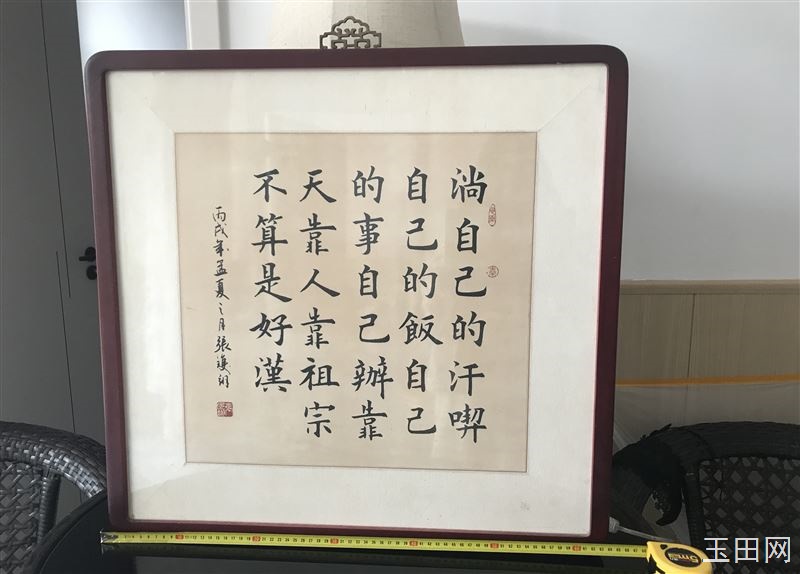 淌自己的汗喫
自己的飯自己
的事自己辦靠
天靠人靠祖宗
不算是好漢
丙戌年孟夏之月張
5m
玉田网